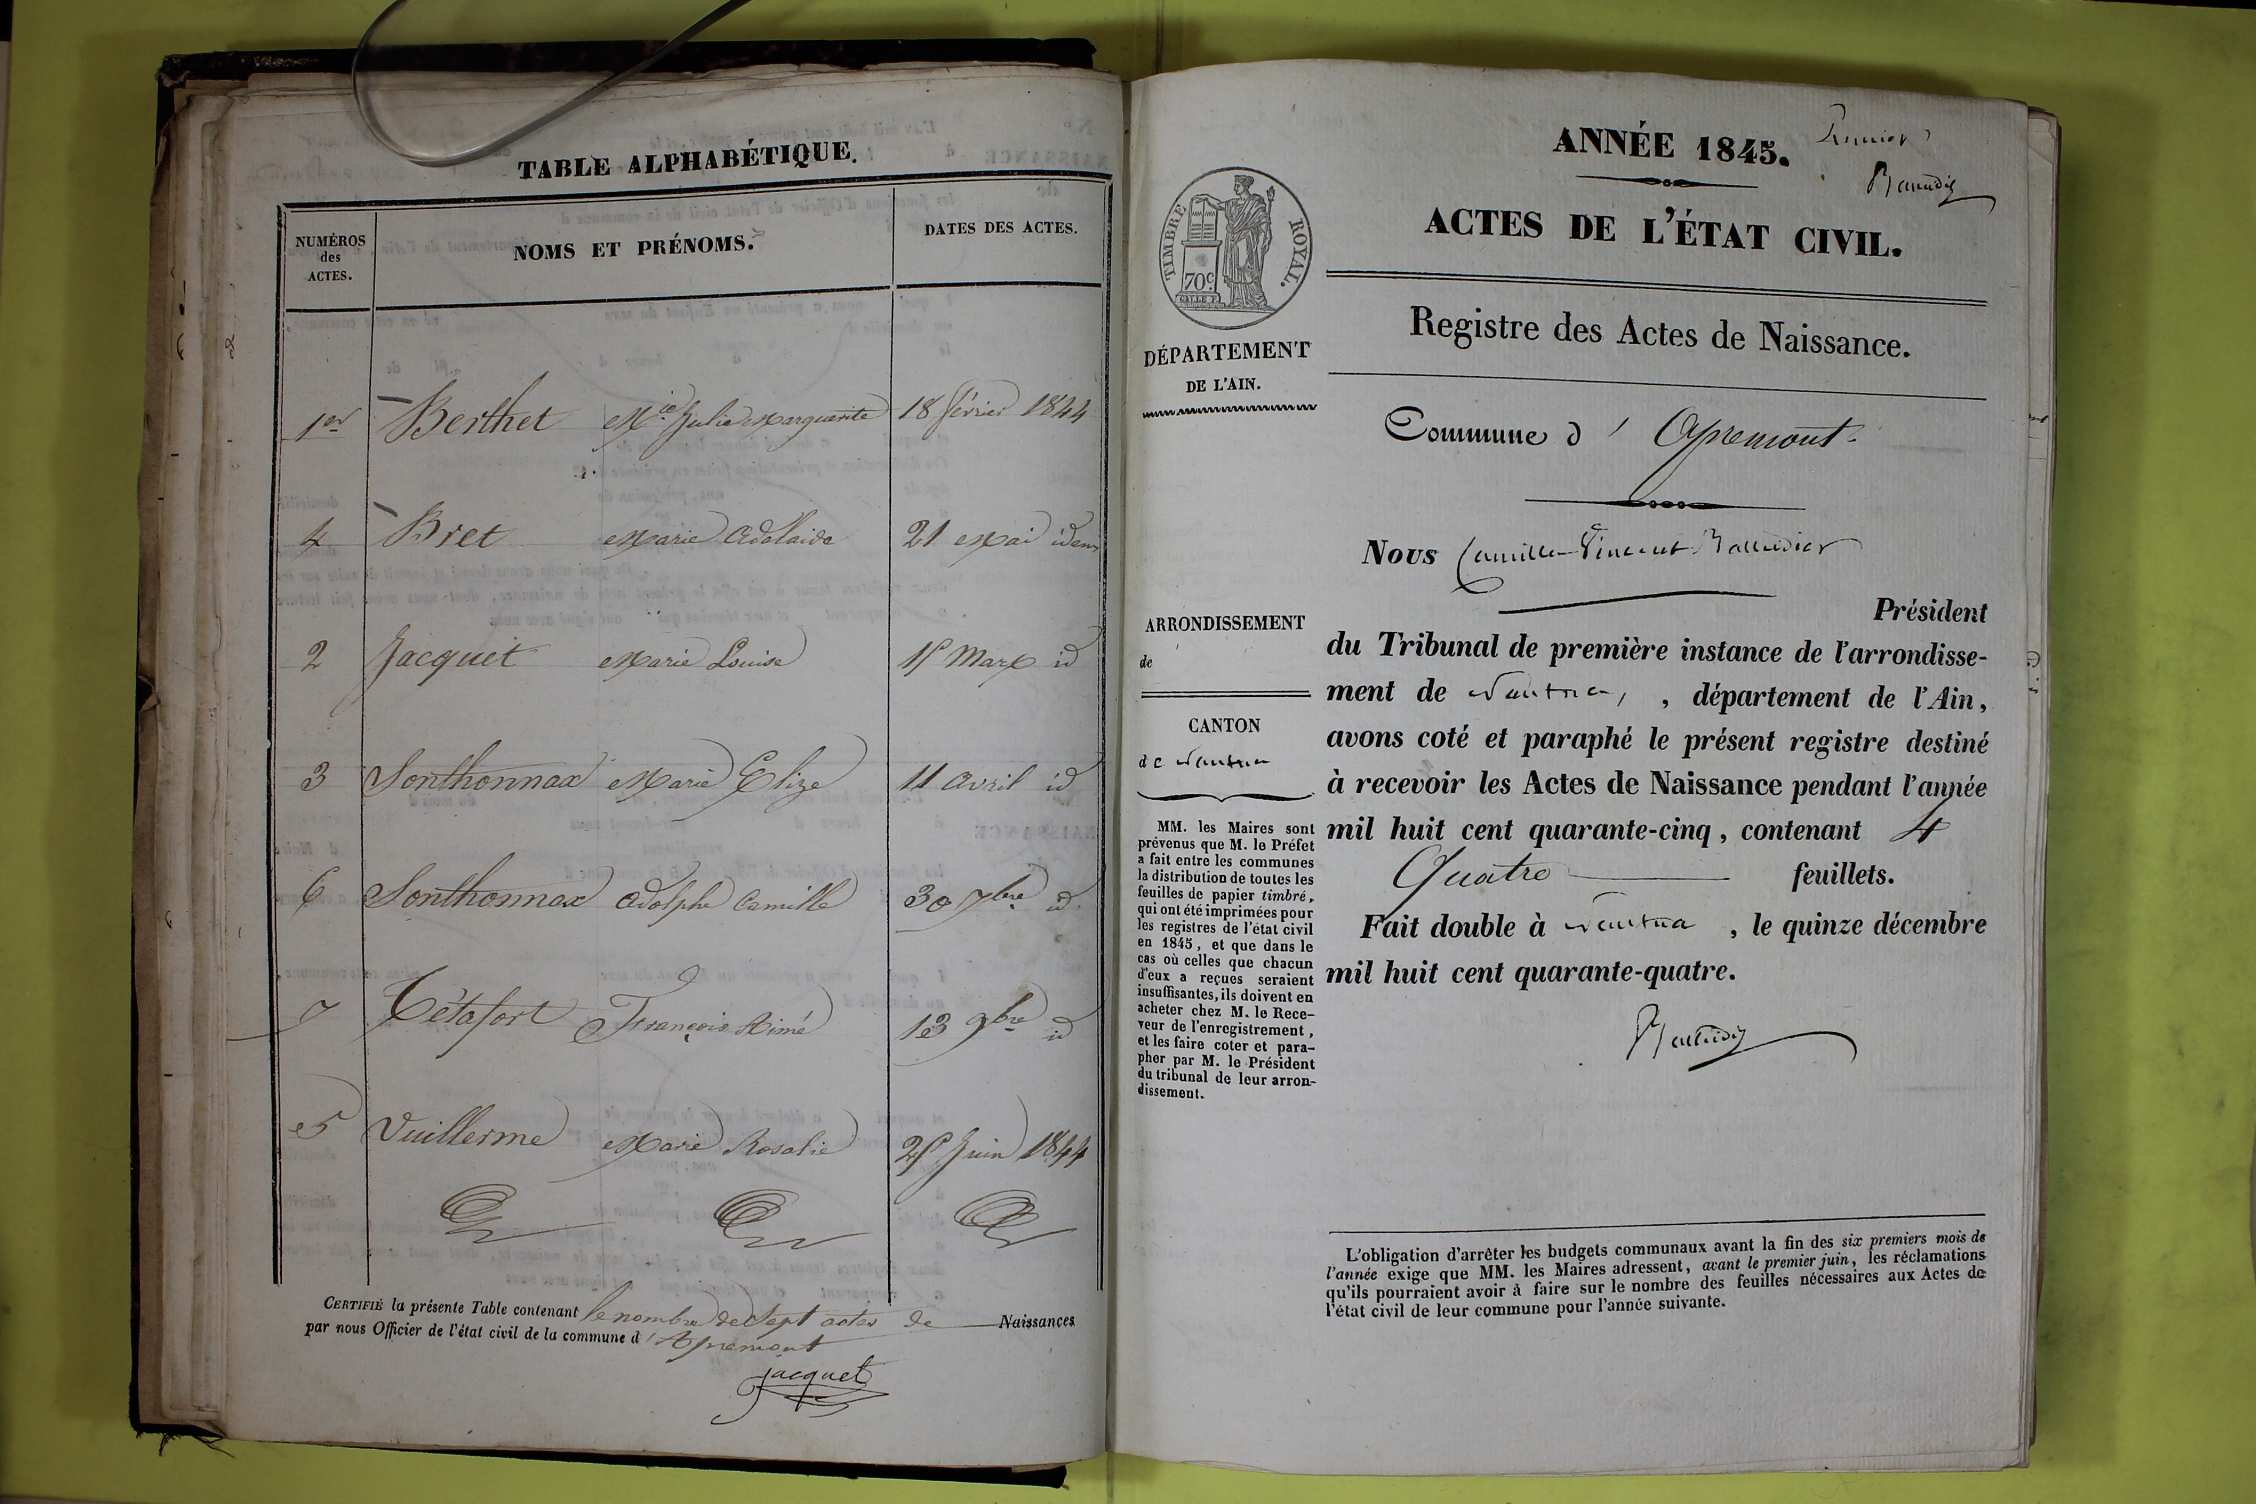 TABLE ALPHABÉTIQUE.
NUMÉROS
des
ACTES.
NOMS ET PRÉNOMS.
DATES DES ACTES.
1er Berthet Mie Julie Marguerite 18 février 1844
4 Bret Marie Adélaïde 21 Mai idem
2 Jacquet Marie Louise Mars id
3 Sonthonnax Marie Elize 11 avril id
6 Sonthonnax Adolphe Camille 30 7bre id
7 Tétafort François Aimé 13 9bre id
5 Vuillerme Marie Rosalie Juin 1844
CERTIFIÉ la présente Table contenant le nombre de Sept actes de Naissances
par nous Officier de l'état civil de la commune d'Apremont
jacquet
ANNÉE 1845.
Premier
ACTES DE L'ÉTAT CIVIL.
TIMBRE ROYAL.
70c.
Registre des Actes de Naissance.
DÉPARTEMENT
DE L'AIN.
Commune d'Apremont.
Nous Camille Vincent
Président
ARRONDISSEMENT
de
du Tribunal de première instance de l'arrondisse-
ment de Nantua, , département de l'Ain,
CANTON
de Nantua
avons coté et paraphé le présent registre destiné
à recevoir les Actes de Naissance pendant l'année
mil huit cent quarante-cinq, contenant 4
Quatre feuillets.
Fait double à Nantua , le quinze décembre
mil huit cent quarante-quatre.
MM. les Maires sont
prévenus que M. le Préfet
a fait entre les communes
la distribution de toutes les
feuilles de papier timbré,
qui ont été imprimées pour
les registres de l'état civil
en 1845, et que dans le
cas où celles que chacun
d'eux a reçues seraient
insuffisantes, ils doivent en
acheter chez M. le Rece-
veur de l'enregistrement,
et les faire coter et para-
pher par M. le Président
du tribunal de leur arron-
dissement.
L'obligation d'arrêter les budgets communaux avant la fin des six premiers mois de
l'année exige que MM. les Maires adressent, avant le premier juin, les réclamations
qu'ils pourraient avoir à faire sur le nombre des feuilles nécessaires aux Actes de
l'état civil de leur commune pour l'année suivante.